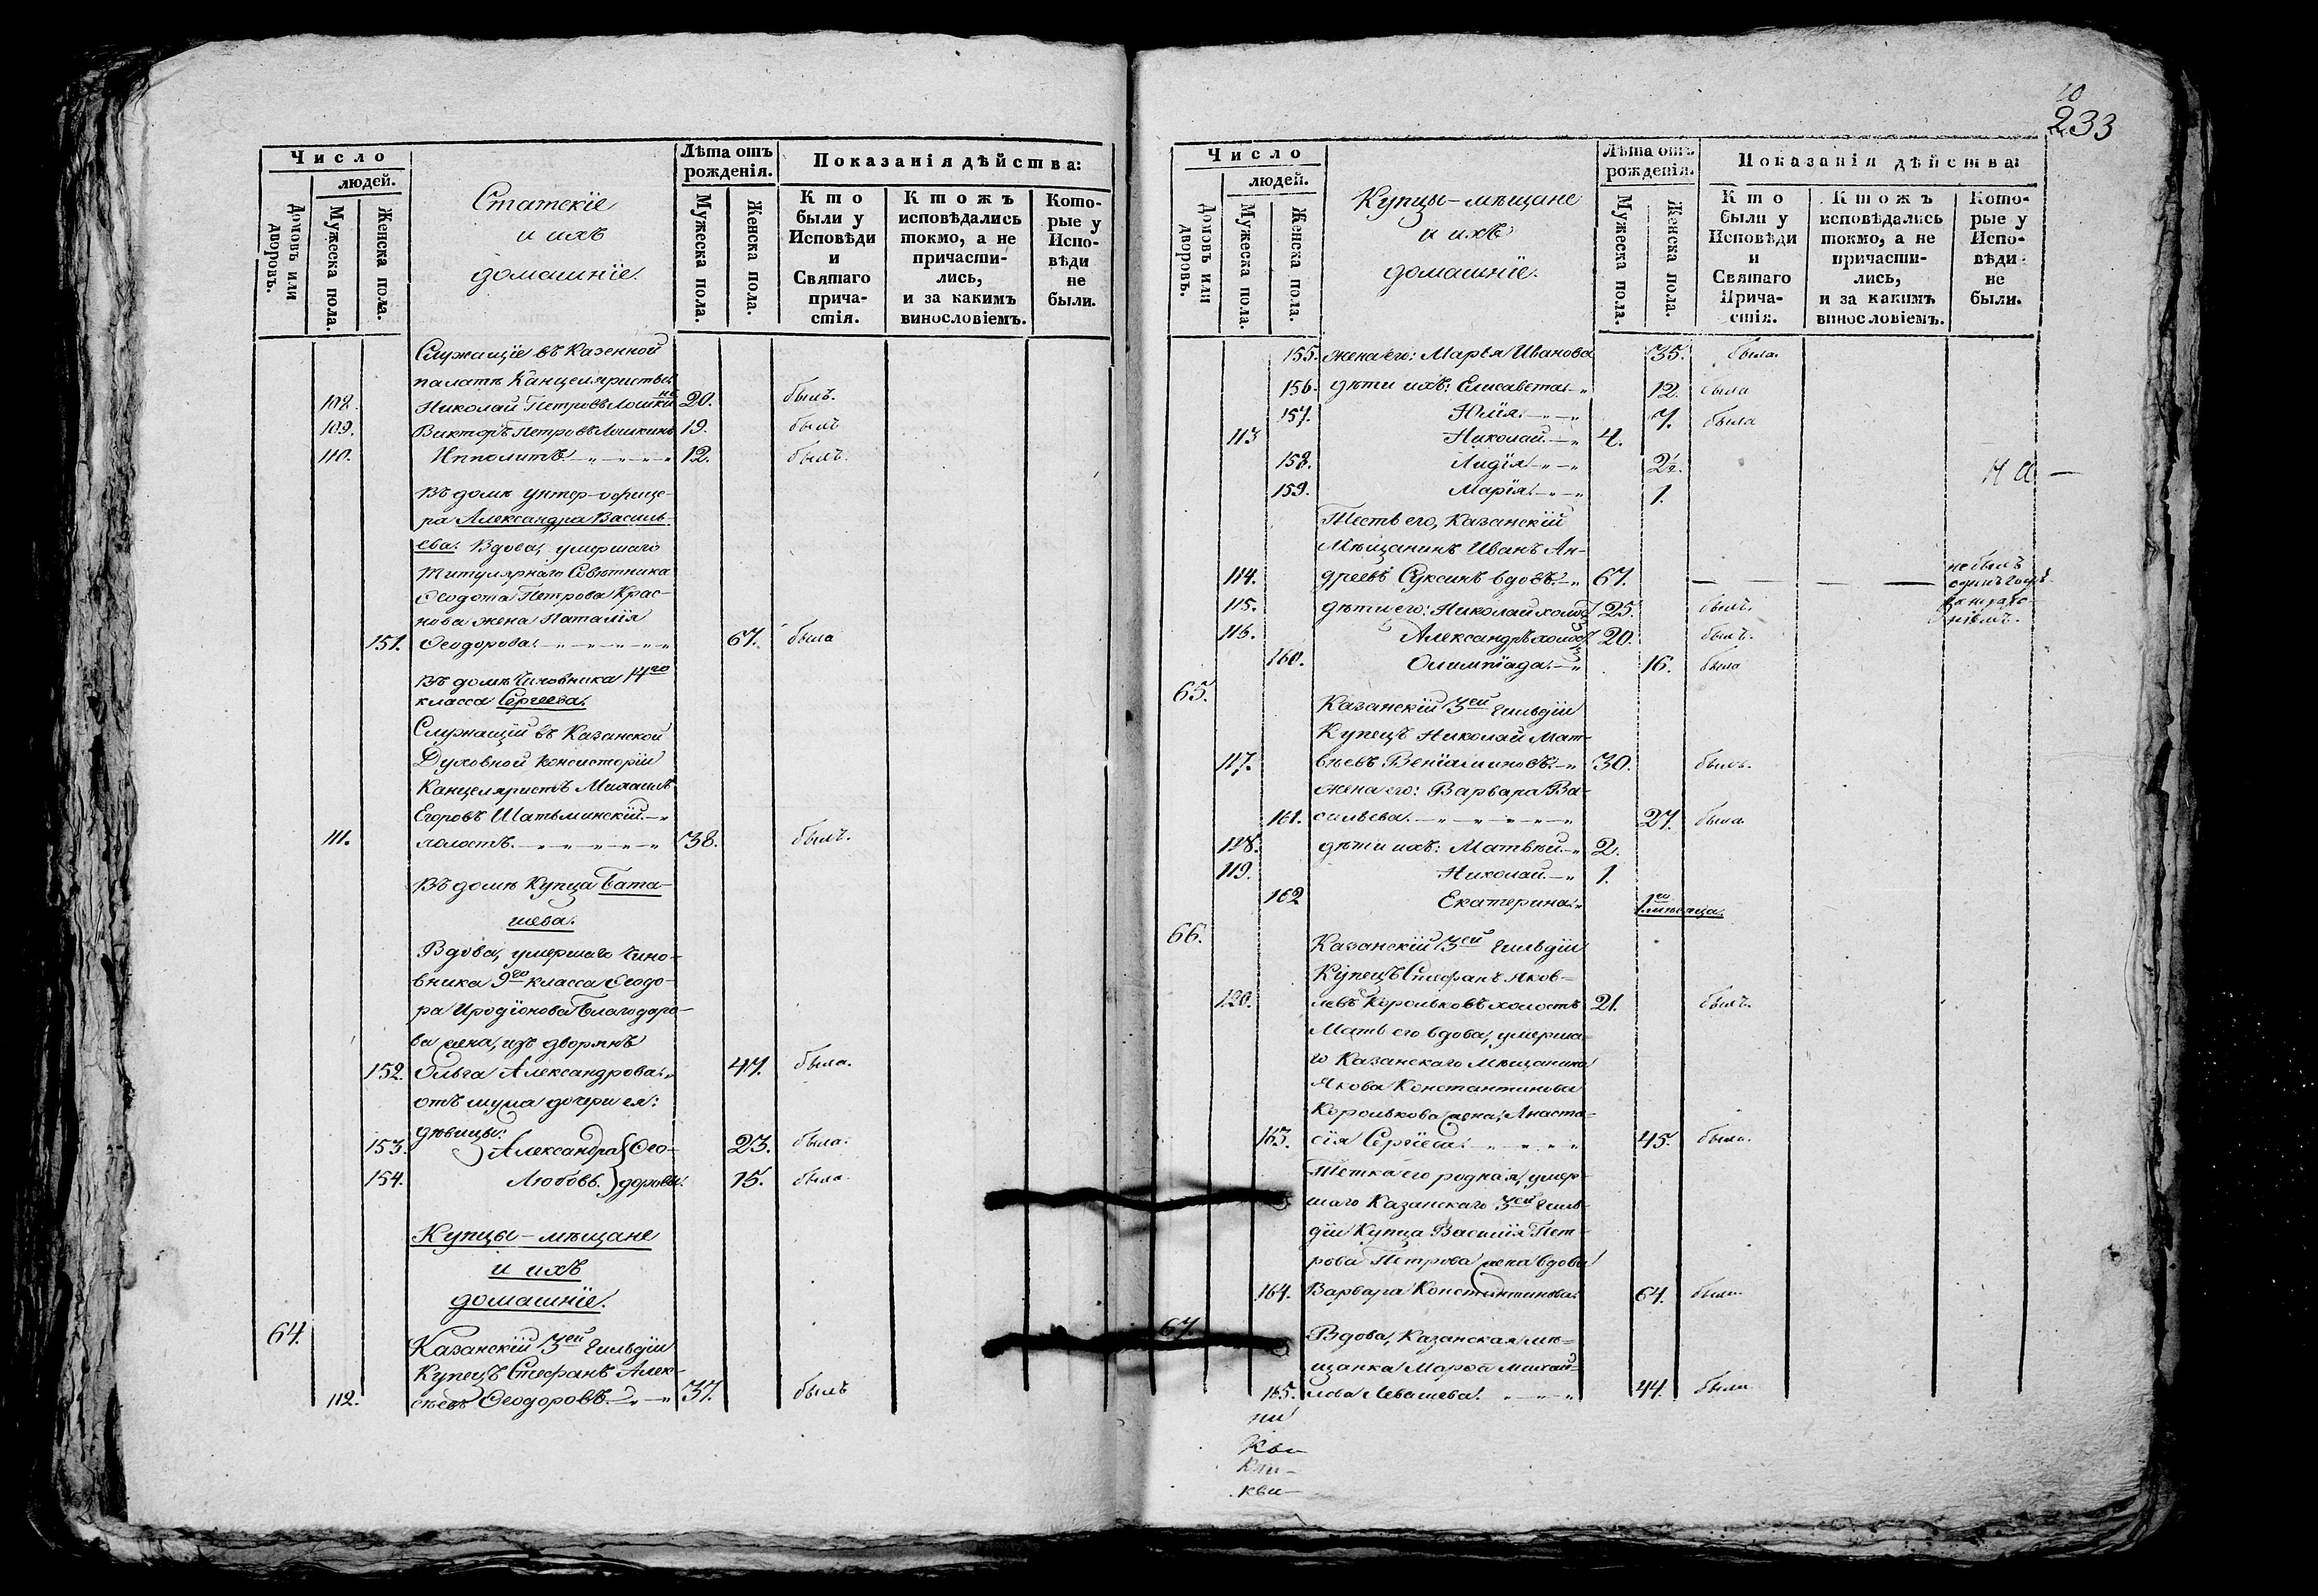 Число
людей.
Домовъ или дворовъ.
Мужеска пола.
Женска пола.
Статскіе
и ихъ
домашніе.
Лѣта отъ рожденія.
Мужеска пола.
Женска пола.
Показанія дѣйства:
Кто были у Исповѣди и Святаго причастія.
Ктожъ исповѣдались токмо, а не причастились, и за какимъ винословіемъ.
Которые у Исповѣди не были.
Служащіе въ Казенной
палатѣ Канцеляристы:
108. Николай Петровъ Лошкинъ 20. былъ.
109. Викторъ Петровъ Лошкинъ 19. былъ
110. Ипполитъ - „ - „ - „ - „ 12. былъ.
Въ домѣ унтер-офице-
ра Александра Василь-
ева. Вдова, умершаго
титулярнаго Совѣтника
Ѳеодота Петрова Крас-
нова жена Наталія
151. Ѳеодорова. - „ - „ - „ - „ 67. была
Въ домѣ Чиновника 14го
класса Сергѣева.
Служащій въ Казанской
Духовной Консисторіи
Канцеляристъ Михаилъ
Егоровъ Шатьминскій. - „
111. холостъ. - „ - „ - „ - „ - „ 38. былъ.
Въ домѣ Купца Бата-
шева.
Вдова, умершаго Чино-
вника 9го класса Ѳеодо-
ра Иродіонова Благодаро-
ва жена, изъ дворянъ
152. Ольга Александрова. „ 47. была.
отъ мужа дочери ея:
дѣвицы:
153. Александра } Ѳео- 23. была.
154. Любовь. } доровы. 15. была.
Купцы - мѣщане
и ихъ
домашніе.
64. Казанскій 3ей гильдіи
Купецъ Стефанъ Алек-
112. сѣевъ Ѳеодоровъ. - „ - „ 37. былъ
10
233
Число
людей.
Домовъ или дворовъ.
Мужеска пола.
Женска пола.
Купцы - мѣщане
и ихъ
домашніе.
Лѣта отъ рожденія.
Мужеска пола.
Женска пола.
Показанія дѣйства:
Кто были у Исповѣди и Святаго Причастія.
Ктожъ исповѣдались токмо, а не причастились, и за какимъ винословіемъ.
Которые у Исповѣди не были.
155. жена его: Марья Иванова 35. была.
156. дѣти ихъ: Елисавета. - „ 12. была
157. Юлія. - „ - „ 7. была
113 Николай. - „ 4.
158. Лидія. - „ - „ 2½.
159. Марія. - „ - „ 1.
Тесть его, Казанскій
Мѣщанинъ Иванъ Ан-
114. дреевъ Суксинъ вдовъ. - „ 67. — — — не былъ
115. дѣти его: Николай холос. 25. былъ.
116. Александръ холос. 20. былъ.
160. Олимпіада. - „ 16. была
65.
Казанскій 3ей гильдіи
Купецъ Николай Мат-
117. вѣевъ Веніаминовъ. - „ 30. былъ.
жена его: Варвара Ва-
161. сильева. - „ - „ - „ - „ - „ 27. была.
118. дѣти ихъ: Матвѣй. - „ 2.
119. Николай. - „ 1.
162 Екатерина. „ 1го мѣсяца.
66.
Казанскій 3ей гильдіи
Купецъ Стефанъ Яков-
120. левъ Корольковъ холостъ 21. былъ.
Мать его вдова, умерша-
го Казанскаго Мѣщанина
Якова Константинова
Королькова жена, Анаста-
163. сія Сергіева. - „ - „ - „ - „ 45. была.
Тетка его родная, умер-
шаго Казанскаго 3ей гиль-
діи Купца Василія Пет-
рова Петрова жена вдова
164. Варвара Константинова. 64. была.
67. Вдова, Казанская мѣ-
щанка Марѳа Михай-
165. лова Левашева. - „ - „ - „ 44. была